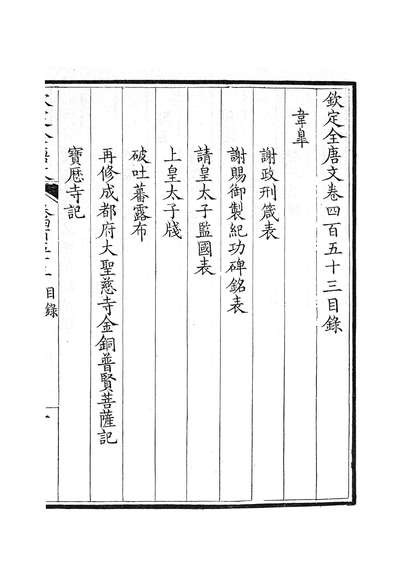 欽定全唐文卷四百五十三目錄
韋臯
謝政刑箴表
謝賜御製紀功碑銘表
請皇太子監國表
上皇太子牋
破吐蕃露布
再修成都府大聖慈寺金銅普賢菩薩記
寶厯寺記
目錄